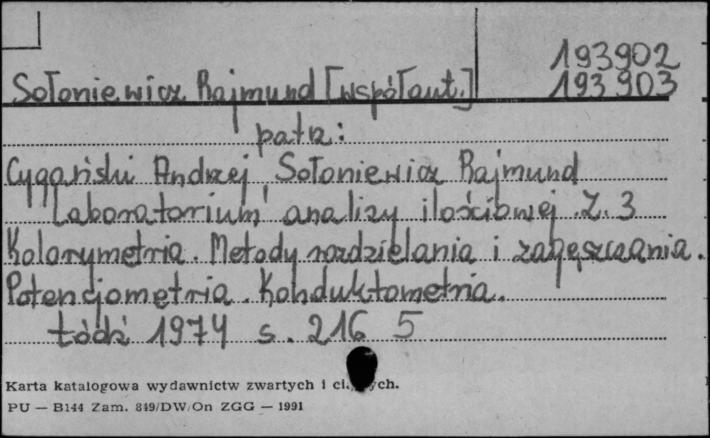 193902
Sołoniewicz Rajmund [współaut.] 193903
patrz:
Cygański Andrzej, Sołoniewicz Rajmund
Laboratorium analizy ilościowej. Z. 3
Kolorymetria. Metody rozdzielania i zagęszczania.
Potencjometria. Konduktometria.
Łódź 1974 s. 216 5
Karta katalogowa wydawnictw zwartych i ych.
PU — B144 Zam. 849/DW/On ZGG — 1991